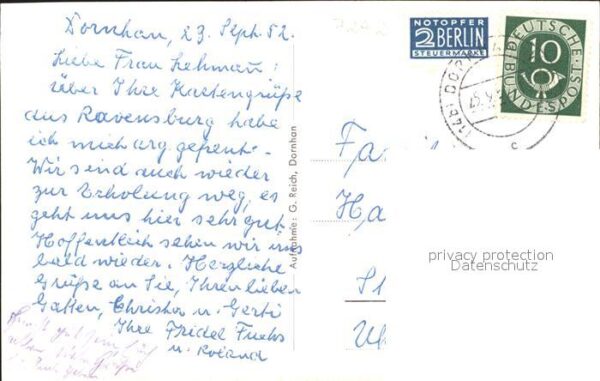 Dornhan, 23. Sept. 52
Liebe Frau Lehmann!
Über Ihre Kartengrüße
aus Ravensburg habe
ich mich arg gefreut.
Wir sind auch wieder
zur Erholung weg, es
geht uns hier sehr gut
Hoffentlich sehen wir uns
bald wieder. Herzliche
Grüße an Sie, Ihren lieben
Gatten, Christa u. Gerti
Ihre Friedel Fuchs
u. Roland
Aufnahme: G. Reich, Dornhan
NOTOPFER
2 BERLIN
STEUERMARKE
DEUTSCHE
BUNDESPOST
10
(14b) DORN
c
Fa
Ha
St
privacy protection
Datenschutz